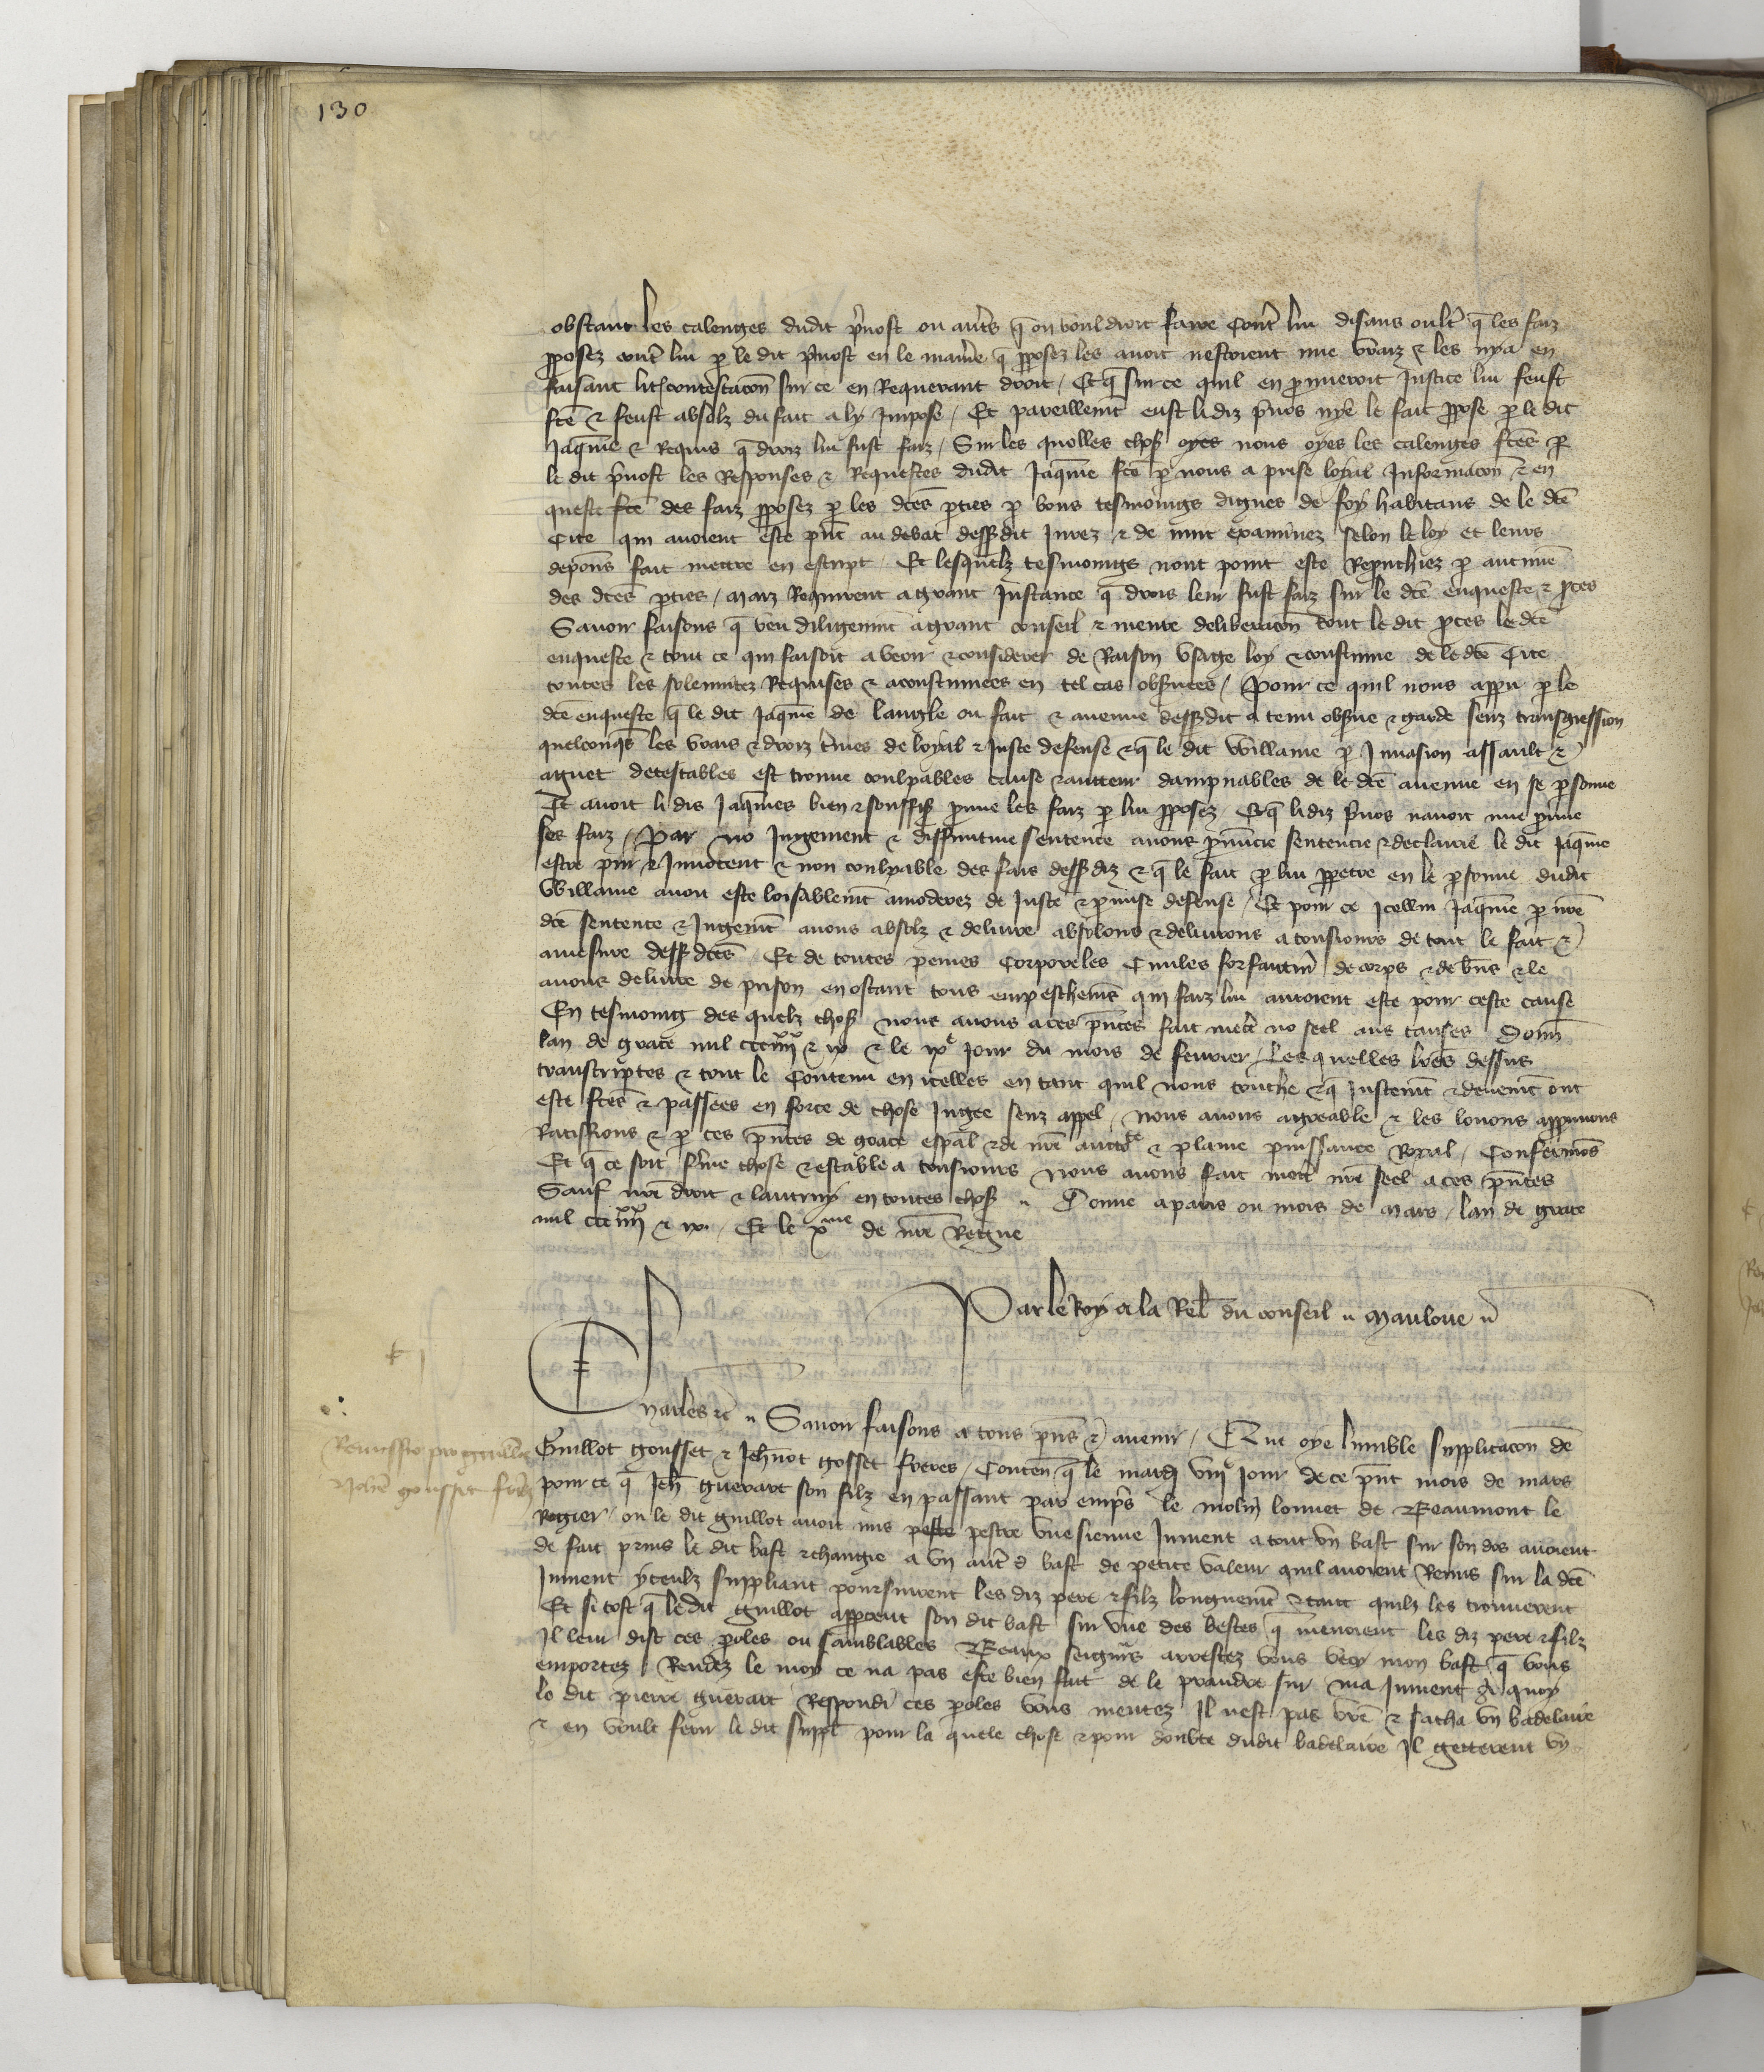 130
obstant les calenges dudit p̃uost ou aut̃s q̃ on vouldroit faire cont̃ lui disans oult̃ q̃ les faiz
p̱posez cont̃ lui p̱ le dit p̃uost en le manie᷑ q̃ p̱posez les auoit nestoient mie vraiz ⁊ les nya en
faisant litiscontestacõn sur ce en Requerant droit / Et q̃ sur ce quil en p̱nueroit Justice lui feust
fc̃e ⁊ feust absolz du fait a ly Impose / Et pareillem̃t eust li diz p̃uos nye le fait p̱pose p̱ le dit
Jaq̃me ⁊ Requis q̃ droiz lui fust faiz / Sur les quelles choß oyes nous oyes les calenges fc̃es p̱
le dit p̃uost les Responses ⁊ Requestes dudit Jaq̃me fc̃e p̱ nous a prise loyal Informacõn ⁊ en
queste fc̃e des faiz p̱posez p̱ les dc̃es p̱ties p̱ bons tesmoings dignes de foy habitans de le dc̃e
Cite qui auoient este p̃nt au debat dess᷑dit Jurez ⁊ de nuit examinez selon le loy et leurs
depõns fait mettre en escript / Et lesquelz tesmoings nont point este Repruchiez p̱ aucune
des dc̃es p̱ties / maiz Requirent a grant Instance q̃ drois leur fust faiz sur le dc̃e enqueste ⁊ p̱ces
Sauoir faisons q̃ veu diligem̃nt a grant conseil ⁊ meure deliberacõn tout le dit p̱ces le dc̃e
enqueste ⁊ tout ce qui faisoit a veoir ⁊ considerer de Raison vsage loy ⁊ coustume de le dc̃e Cite
toutes les solemnitez Requises ⁊ acoustumees en tel cas obs̃uees / Pour ce quil nous appu p̱ le
dc̃e enqueste q̃ le dit Jaq̃me de langle ou fait ⁊ auenue dess᷑dit a tenu obs̃ue ⁊ garde senz transgression
quelconq̃s les vrais ⁊ droiz t̃mes de loyal ⁊ Juste defense ⁊ q̃ le dit Willame p̱ Inuasion assault ⁊
aguet detestables est trouue coulpables cause ⁊ aucteur dampnables de le dc̃e auenue en se p̱sonne
Et auoit li dis Jaq̃mes bien ⁊ souffiß p̱uue les faiz p̱ lui p̱posez / Et q̃ li diz p̃uos nauoit mie p̱uue
ses faiz / Par no Jugement ⁊ diffinitiue sentence auons p̱nuncie sentencie ⁊ declairie le dit Jaq̃me
estre pur ⁊ Innocent ⁊ non coulpable des fais dess᷑diz ⁊ q̃ le fait p̱ lui p̱petre en le p̱sonne dudit
Willame auoit este loisablem̃t amoderez de Juste ⁊ p̱mise defense / Et pour ce Icellui Jaq̃me p̱ nr̃e
dc̃e sentence ⁊ Jugem̃t auons absolz ⁊ deliure absolons ⁊ deliurons a tousiours de tout le fait ⁊
auesure dess᷑dc̃es / Et de toutes peines Corporeles Ciuiles forfaitur̃ de corps ⁊ de bñs ⁊ le
auons deliure de prison en ostant tous empeschem̃s qui faiz lui auroient este pour ceste cause
En tesmoing des quelz choß nous auons a ces p̃ntes fait mect̃ no seel aus causes Donñ
lan de grace mil ccciiiixx ⁊ ix ⁊ le ixe jour du mois de feurier / Les quelles lr̃es dessus
transcriptes ⁊ tout le Contenu en icelles en tant quil nous touche ⁊ q̃ Justem̃t ⁊ deuem̃t ont
este fc̃es ⁊ passees en force de chose Jugee senz appel / nous auons agreable ⁊ les louons approuuons
Ratiffions ⁊ p̱ ces p̃ntes de grace esp̃al ⁊ de nr̃e auctõte ⁊ plaine puissance Royal / Confermõs
Et q̃ ce soit ferme chose ⁊ estable a tousiours Nous auons fait mect̃ nr̃e seel a ces p̃ntes
Sauf nr̃e droit ⁊ lautruy en toutes choß ,, Donne a paris ou mois de mars / lan de grace
mil ccciiiixx ⁊ ix / Et le xme de nr̃e Regne
Par le Roy a la Rel̃ du conseil ,, Mauloue ,,
Charles ⁊c̃ ,, Sauoir faisons a tous p̃ns ⁊ auenir / Nous oye lumble supplicacõn de
Remissio pro guillo
Guillot gousset ⁊ Jeh̃not gosset freres / Conten̄ q̃ le mardi viiie jour de ce p̃nt mois de mars
⁊ Joh̃e gousset frib;
pour ce q̃ Jeh̃ guerart son filz en passant par emp̃s le molin louuet de Beaumont le
Rogier / ou le dit guillot auoit mis peste pestre vne sienne Jument a tout vn bast sur son dos auoient
de fait prins le dit bast ⁊ changie a vn aut̃ d bast de petite valeur quil auoient Remis sur la dc̃e
Jument yceulz suppliant poursuirent les diz pere ⁊ filz longuem̃t ⁊ tant quilz les trouuerent
Et si tost q̃ le dit guillot app̱ceut son dit bast sur vne des bestes q̃ menoient les diz pere ⁊ filz
Il leur dist ces p̱oles ou samblables Beaux seign̄rs arrestez vous vecy mon bast q̃ vous
emportez / Rendez le moy ce na pas este bien fait de le prandre sur ma Jument A quoy
le dit pierre guerart Respondi ces p̱oles vous mentez Il nest pas vr̃e ⁊ sacha vn badelaire
⁊ en voult ferir le dit suppl̃ pour la quele chose ⁊ pour doubte dudit badelaire Il getterent vn